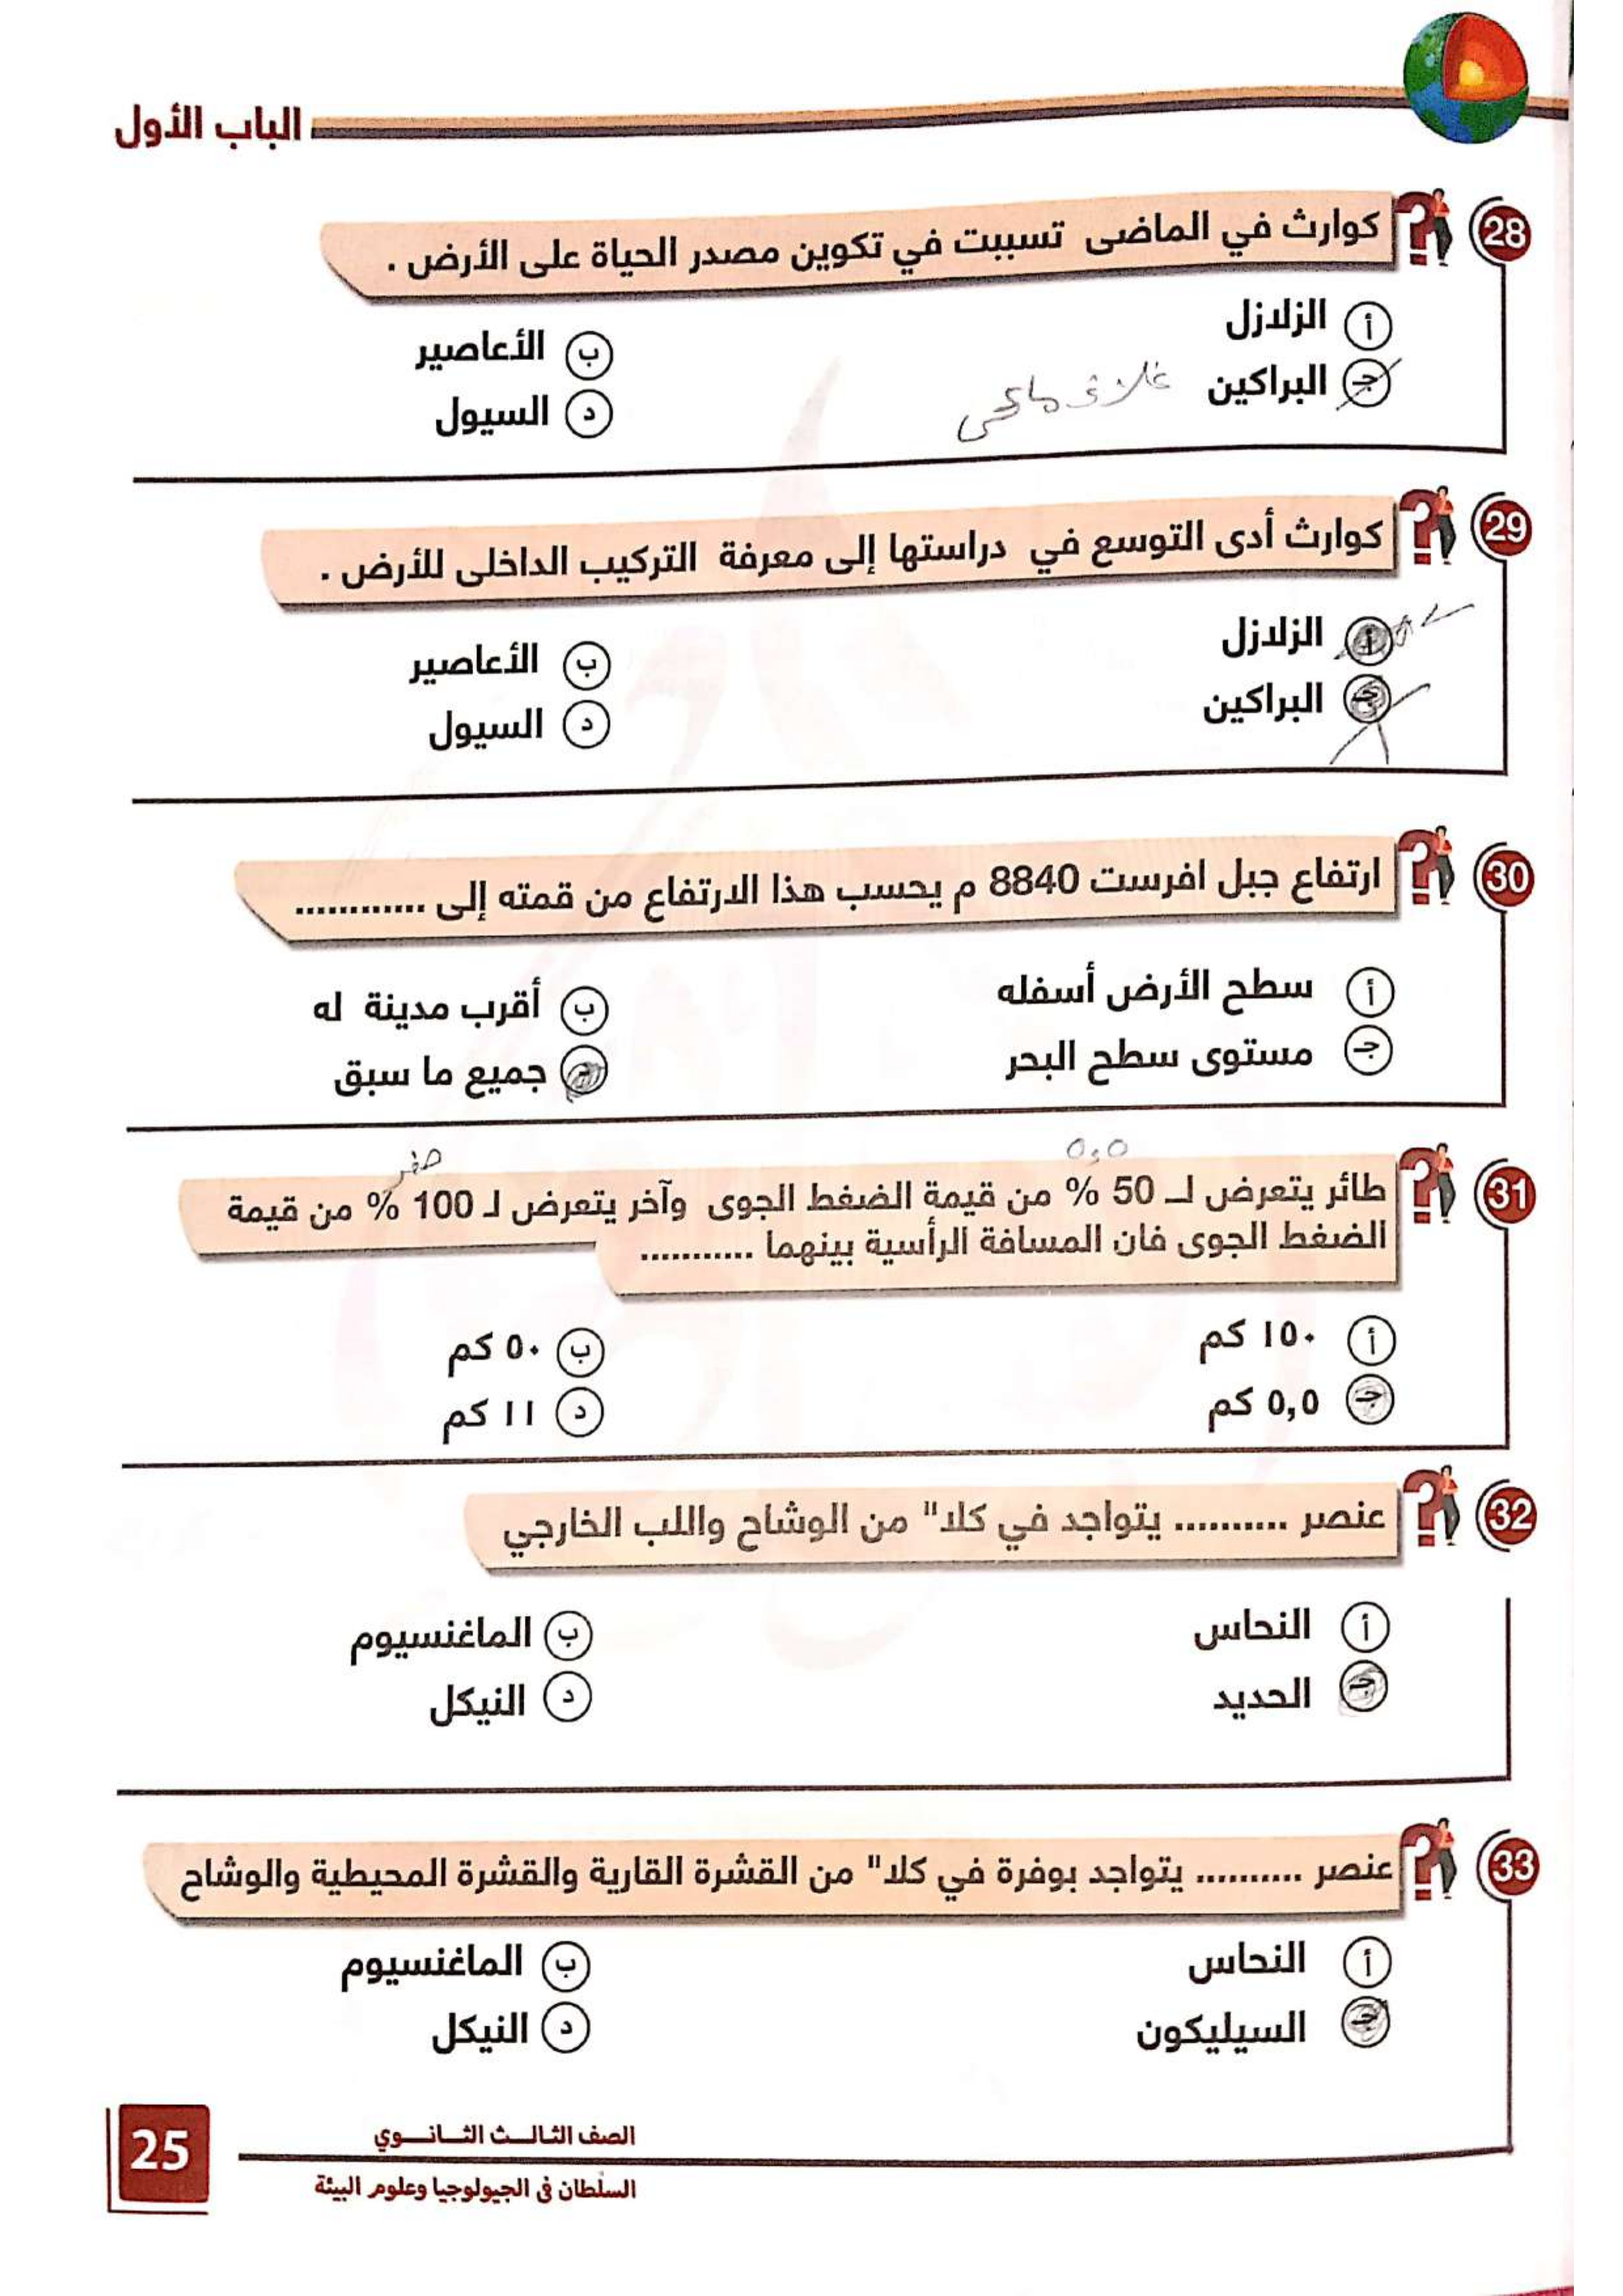 الباب الأول
28
كوارث في الماضى تسببت في تكوين مصدر الحياة على الأرض .
أ الزلازل
ب الأعاصير
جـ البراكين
غلاف مائى
د السيول
29
كوارث أدى التوسع في دراستها إلى معرفة التركيب الداخلى للأرض .
أ الزلازل
ب الأعاصير
جـ البراكين
د السيول
30
ارتفاع جبل افرست 8840 م يحسب هذا الارتفاع من قمته إلى ............
أ سطح الأرض أسفله
ب أقرب مدينة له
جـ مستوى سطح البحر
د جميع ما سبق
31
٥,٥
صفر
طائر يتعرض لـ 50 % من قيمة الضغط الجوى وآخر يتعرض لـ 100 % من قيمة
الضغط الجوى فان المسافة الرأسية بينهما ...........
أ ١٥٠ كم
ب ٥٠ كم
جـ ٥,٥ كم
د ١١ كم
32
عنصر .......... يتواجد في كلا" من الوشاح واللب الخارجي
أ النحاس
ب الماغنسيوم
جـ الحديد
د النيكل
33
عنصر .......... يتواجد بوفرة في كلا" من القشرة القارية والقشرة المحيطية والوشاح
أ النحاس
ب الماغنسيوم
جـ السيليكون
د النيكل
الصف الثالـــث الثــانـــوي
السلطان في الجيولوجيا وعلوم البيئة
25